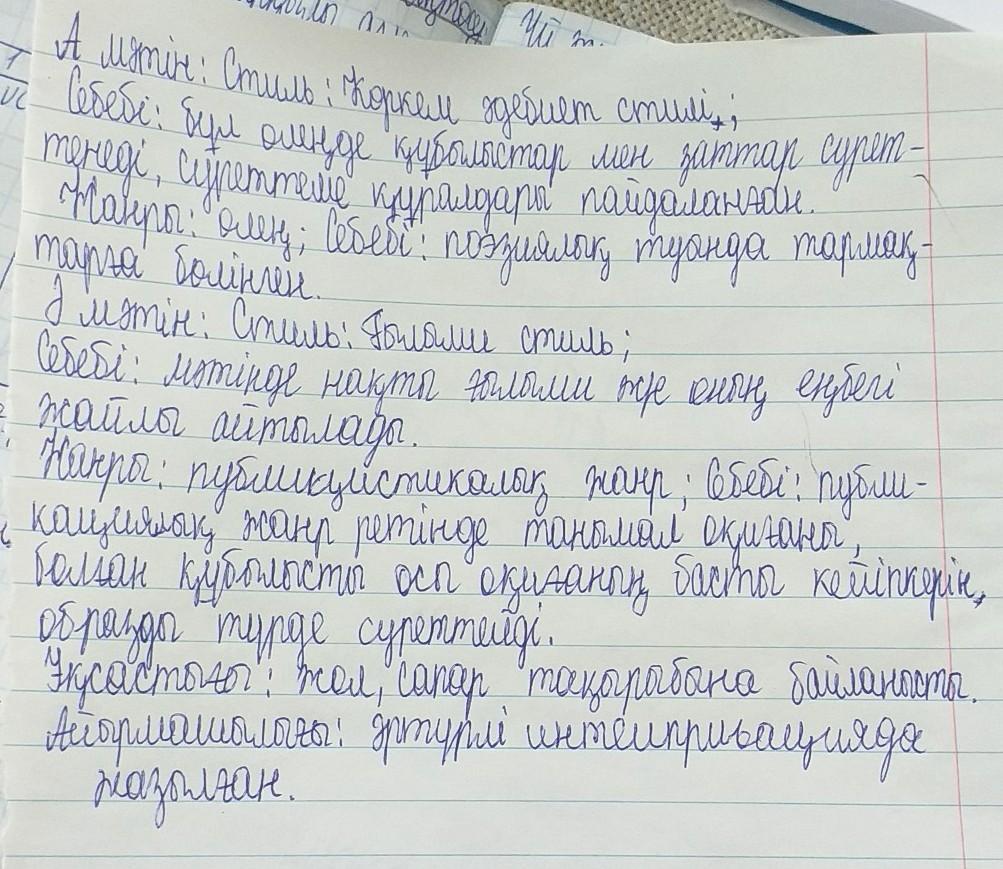 А мәтін: Стиль: Көркем әдебиет стилі,;
Себебі: бұл өлеңде құбылыстар мен заттар сурет-
тенеді, суреттеме құралдары пайдаланған.
Жанры: өлең; Себебі: поэзиялық туында тармақ-
тарға бөлінген.
Ә мәтін: Стиль: Ғылыми стиль;
Себебі: мәтінде нақты ғылыми және оның еңбегі
жайлы айтылады.
Жанры: публицистикалық жанр; Себебі: публи-
кациялық жанр ретінде танымал оқиғаны,
болған құбылысты осы оқиғаның басты кейіпкерін,
образды түрде суреттейді.
Ұқсастығы: жол, сапар тақырыбына байланысты.
Айырмашылығы: әртүрлі
жазылған.